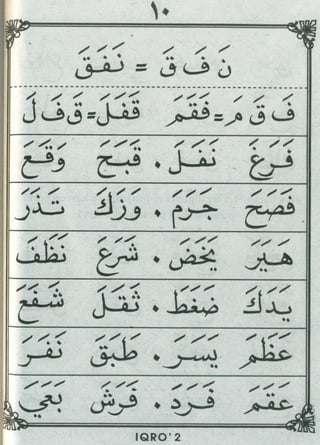 ١٠
نَ فَ قَ = نَفَقَ
فَ قَ مَ=فَقَمَ قَفَلَ=قَ فَ لَ
فَرَغَ نَفَلَ . قَبَحَ وَقَعَ
فَصَحَ جَرَمَ . وَزَكَ تَذَرَ
هَيَرَ يَخَضَ . شَرَعَ نَظَفَ
يَدَكَ ضَغَطَ . ثَقَلَ شَفَعَ
عَظَمَ يَسَرَ . طَبَقَ نَفَرَ
عَقَمَ فَرَدَ . فَرَشَ بَغَيَ
IQRO' 2